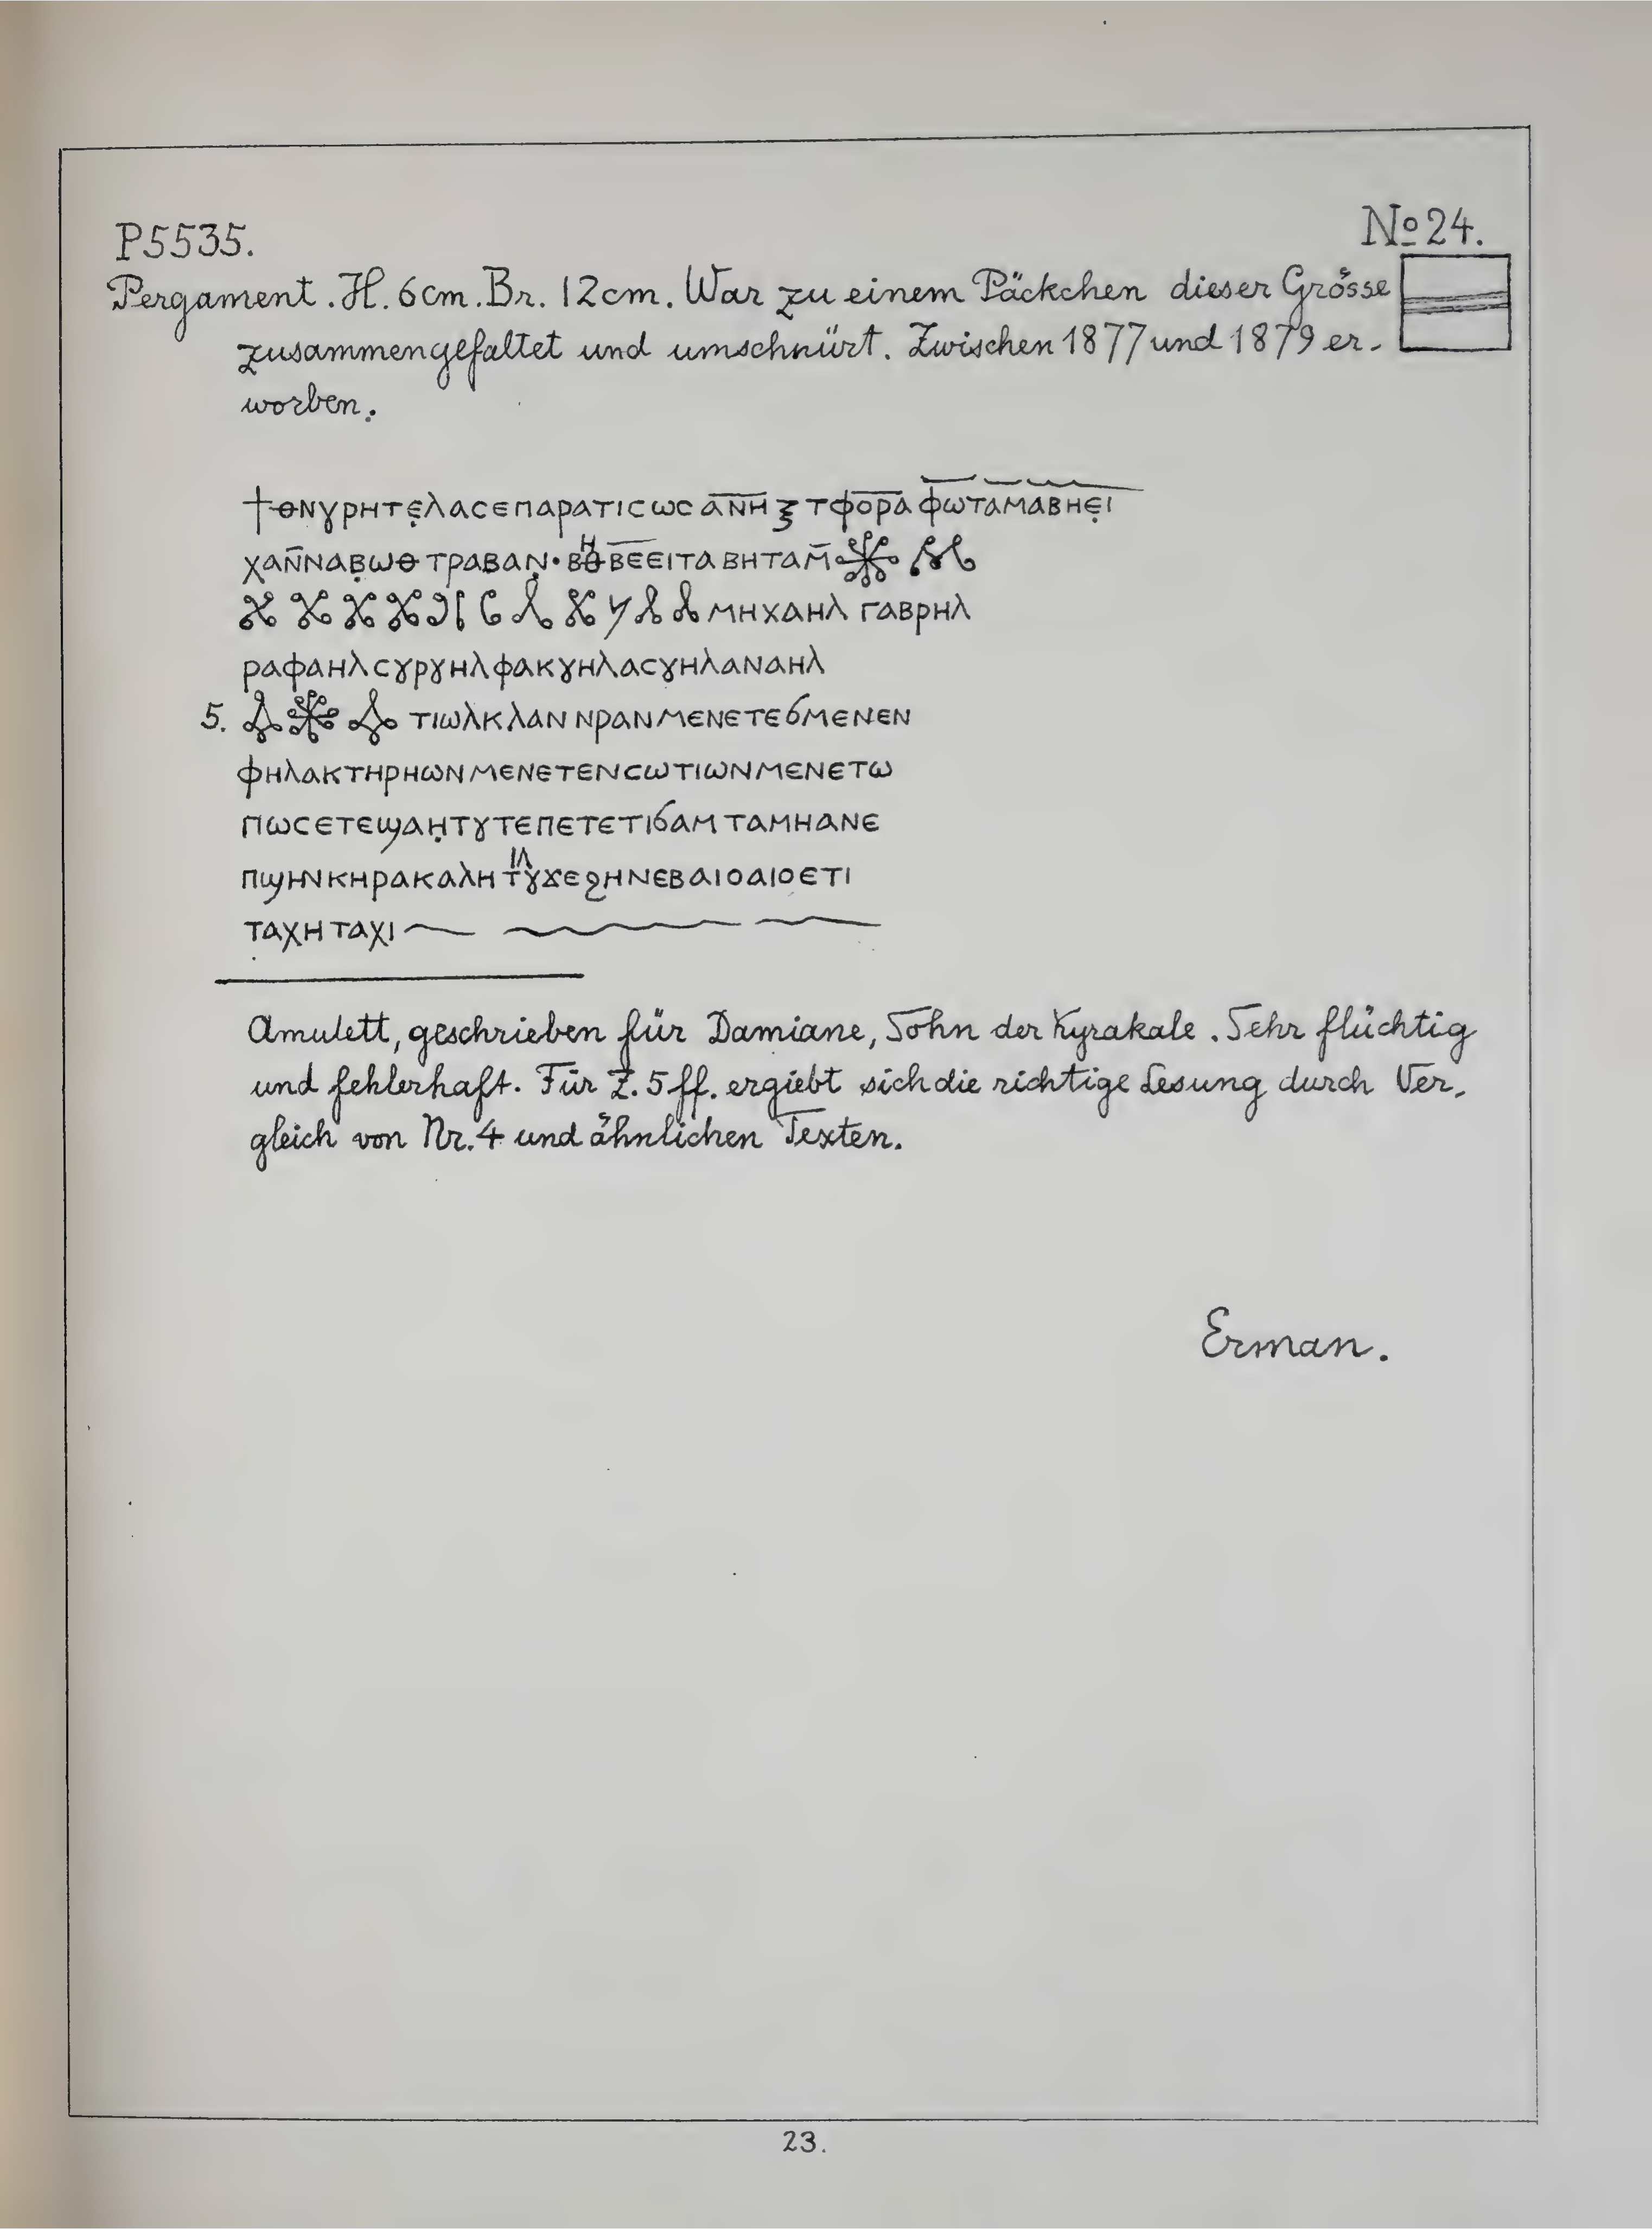 P5535.
No 24.
Pergament. H. 6cm. Br. 12cm. War zu einem Päckchen dieser Grösse
zusammengefaltet und umschnürt. Zwischen 1877 und 1879 er-
worben.
†ⲑⲛⲩⲣⲏⲧⲉ̣ⲗⲁⲥⲉⲡⲁⲣⲁⲧⲓⲥⲱⲥ ⲁ̅ⲛ̅ⲏ̅ ⲝ ⲧⲫⲟ̅ⲣ̅ⲁ ⲫⲱⲧⲁⲙⲁⲃⲏⲉ̣ⲓ
ⲭⲁⲛ̅ⲛⲁⲃ̣ⲱⲑ ⲧⲣⲁⲃⲁⲛ̣· ⲃⲑ ⲃⲉ̅ⲉ̅ⲓⲧⲁ ⲃⲏⲧⲁⲙ̅
ⲙⲏⲭⲁⲏⲗ ⲅⲁⲃⲣⲏⲗ
ⲣⲁⲫⲁⲏⲗ ⲥⲩⲣⲩⲏⲗ ⲫⲁⲕⲩⲏⲗⲁⲥⲩⲏⲗⲁⲛⲁⲏⲗ
5. ⲧⲓⲱⲗⲕⲗⲁⲛ ⲛⲣⲁⲛⲙⲉⲛⲉⲧⲉϭⲙⲉⲛⲉⲛ
ⲫⲏⲗⲁⲕⲧⲏⲣⲏⲱⲛⲙⲉⲛⲉⲧⲉⲛⲥⲱⲧⲓⲱⲛⲙⲉⲛⲉⲧⲱ
ⲡⲱⲥⲉⲧⲉϣⲁⲏ̣ⲧⲩⲧⲉⲡⲉⲧⲉⲧⲓϭⲁⲙ ⲧⲁⲙⲏⲁⲛⲉ
ⲡϣⲏⲛⲕⲏⲣⲁⲕⲁⲗⲏ ⲧⲩϫⲉϩⲏⲛⲉⲃⲁⲓⲟⲁⲓⲟⲉⲧⲓ
ⲧⲁⲭⲏ ⲧⲁⲭⲓ
Amulett, geschrieben für Damiane, Sohn der Kyrakale. Sehr flüchtig
und fehlerhaft. Für Z. 5 ff. ergiebt sich die richtige Lesung durch Ver-
gleich von Nr. 4 und ähnlichen Texten.
Erman.
23.